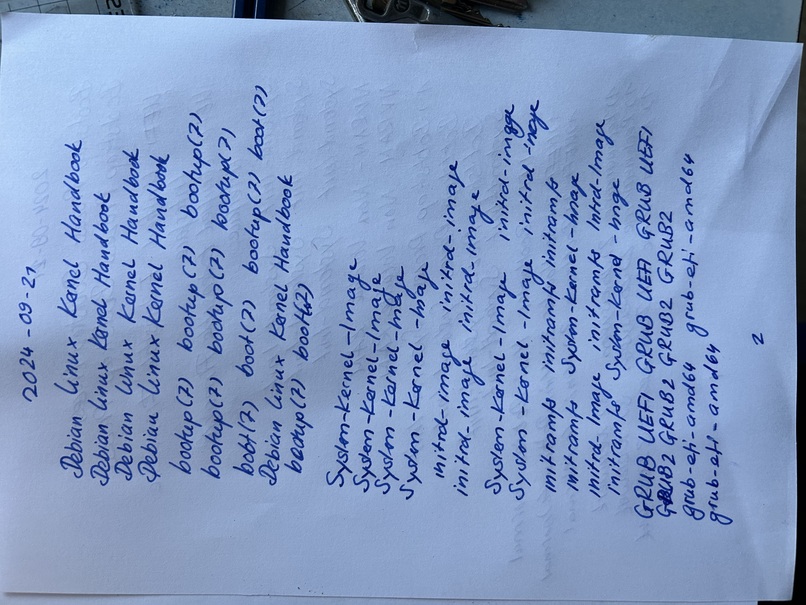 2024-09-21
Debian Linux Kernel Handbook
Debian Linux Kernel Handbook
Debian Linux Kernel Handbook
Debian Linux Kernel Handbook
bootup(7) bootup(7) bootup(7)
bootup(7) bootup(7) bootup(7)
boot(7) boot(7) bootup(7) boot(7)
Debian Linux Kernel Handbook
bootup(7) boot(7)
System-Kernel-Image
System-Kernel-Image
System-Kernel-Image
System-Kernel-Image
initrd-image initrd-image
initrd-image initrd-image
System-Kernel-Image initrd-image
System-Kernel-Image initrd-image
initramfs initramfs initramfs
initramfs System-Kernel-Image
initrd-Image initramfs Initrd-Image
initramfs System-Kernel-Image
GRUB UEFI GRUB UEFI GRUB UEFI
GRUB2 GRUB2 GRUB2 GRUB2
grub-efi-amd64 grub-efi-amd64
grub-efi-amd64
2